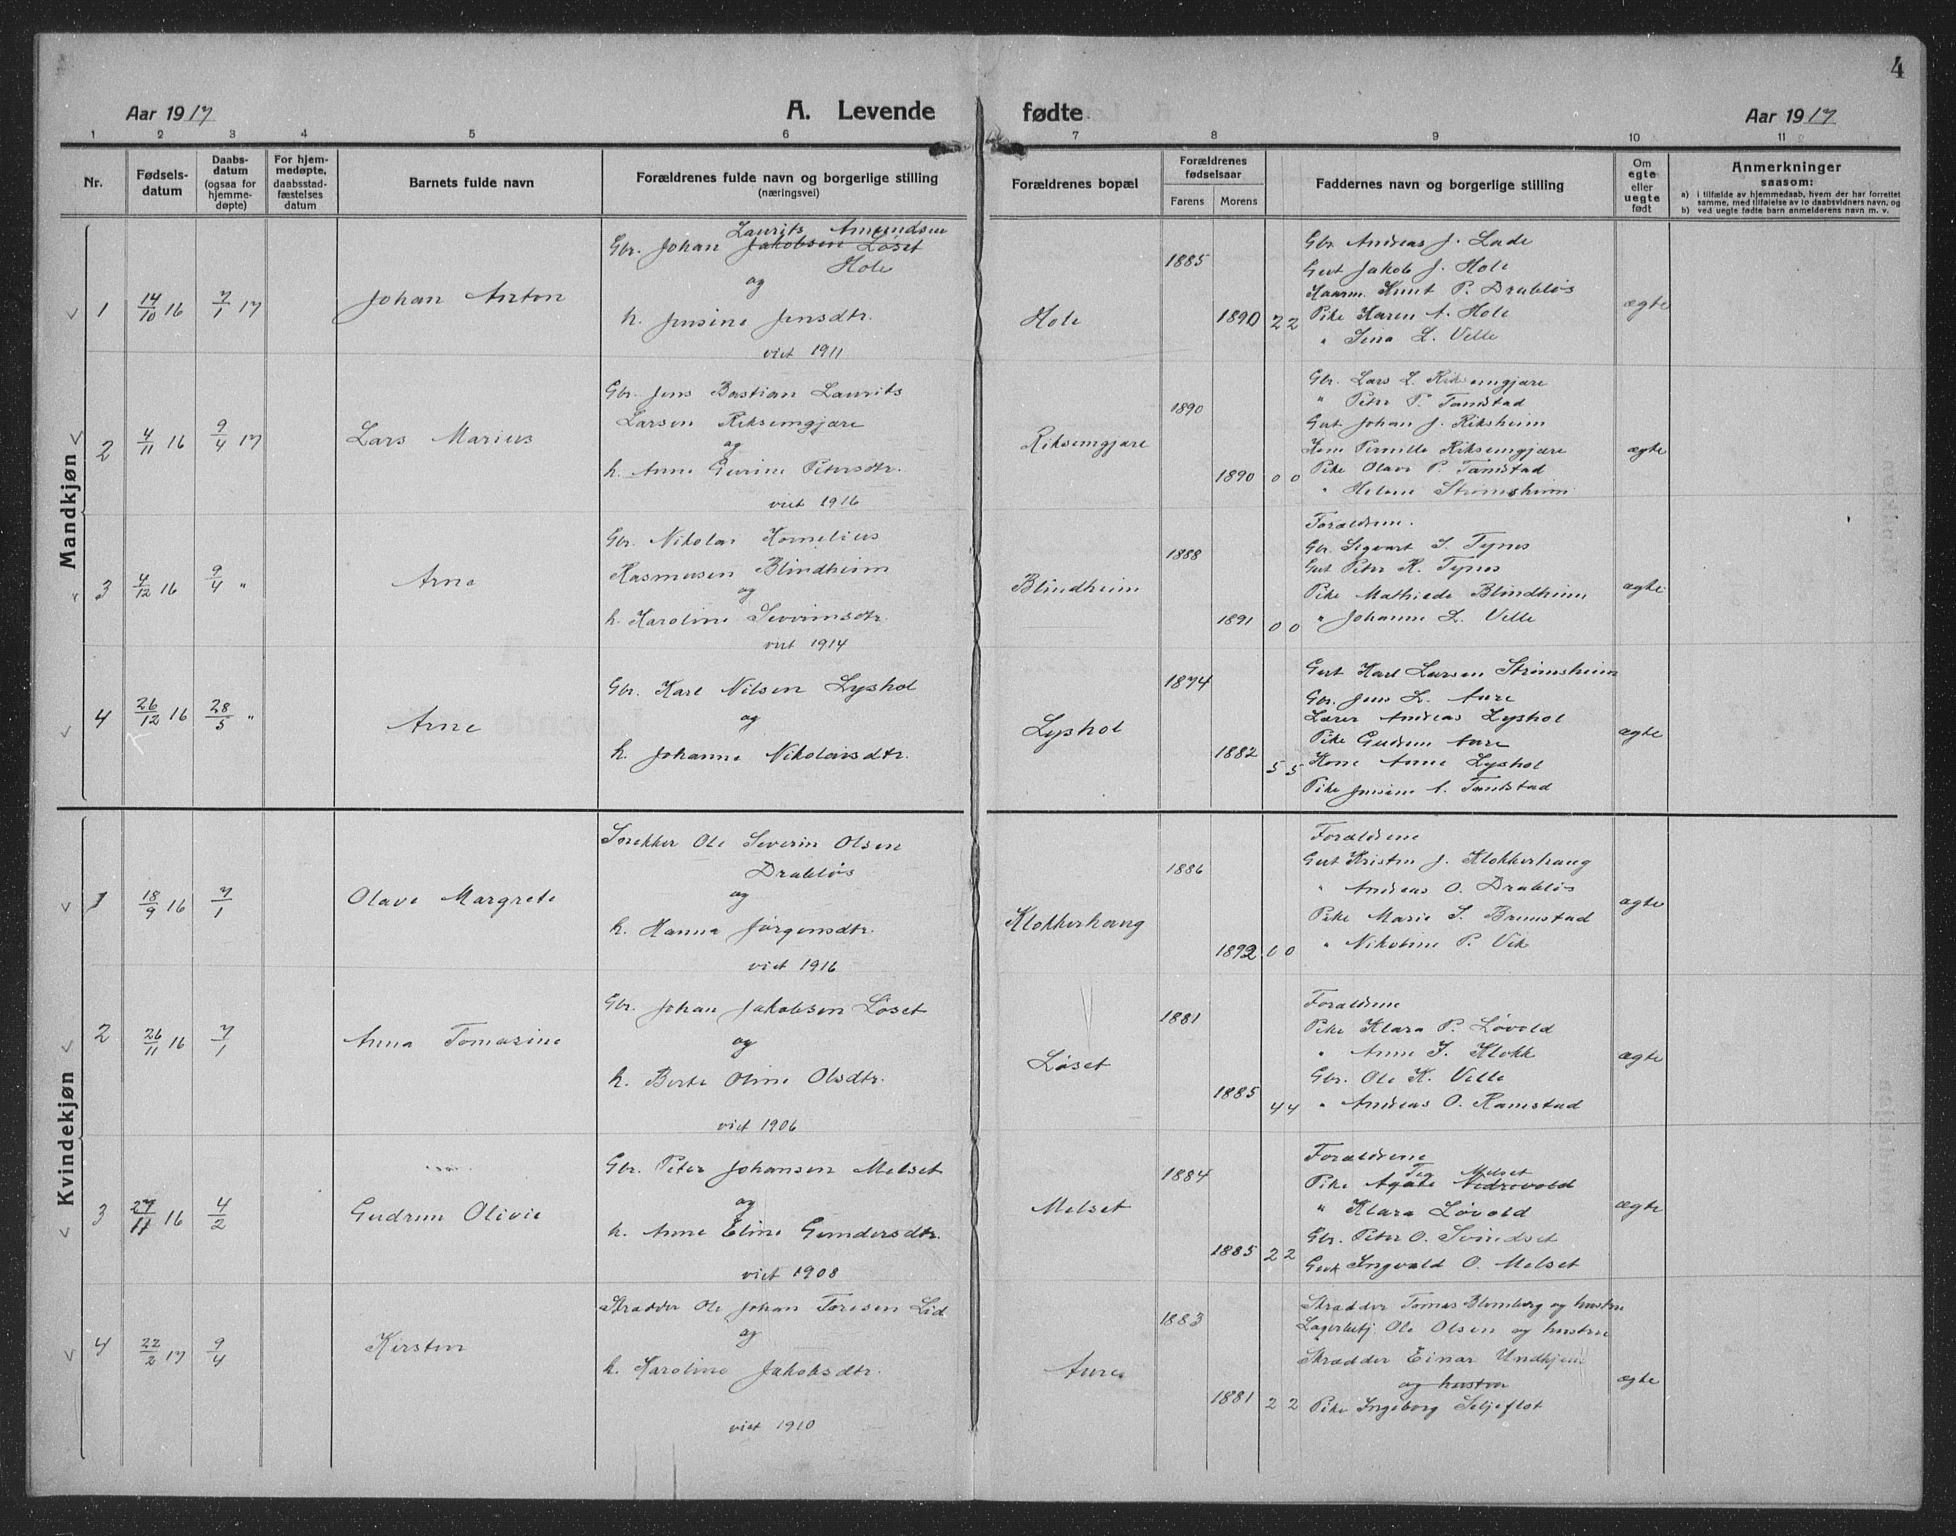 4
Aar 1917
A. Levende fødte
Aar 1917
1 2 3 4 5 6 7 8 9 10 11
Nr.
Fødsels-
datum
Daabs-
datum
(ogsaa for
hjemme-
døpte)
For hjem-
medøpte,
daabsstad-
fæstelses
datum
Barnets fulde navn
Forældrenes fulde navn og borgerlige stilling
(næringsvei)
Forældrenes bopæl
Forældrenes
fødselsaar
Farens Morens
Faddernes navn og borgerlige stilling
Om
egte
eller
uegte
født
Anmerkninger
saasom:
a) i tilfælde av hjemmedaab, hvem der har forrettet
samme, med tilføielse av to daabsvidners navn, og
b) ved uegte fødte barn anmelderens navn m. v.
Mandkjøn
1
14/10 16
7/1 17
Johan Anton
Laurits Amundsen
Gbr. Johan Jakobsen Løset
Hole
og
h. Jensine Jensdtr.
viet 1911
Hole
1885
1890
2 2
Gbr. Andreas J. Lade
Gut Jakob J. Hole
Haarm. Knut P. Drabløs
Pike Karen A. Hole
" Sina L. Velle
ægte
2
4/11 16
9/4 17
Lars Marius
Gbr. Jens Bastian Laurits
Larsen Riksemgjære
og
h. Anne Gurine Petersdtr.
viet 1916
Riksemgjære
1890
1890
0 0
Gbr. Lars L. Riksemgjære
" Peter P. Tandstad
Gut Johan J. Riksheim
Kone Pernille Riksemgjære
Pike Olave P. Tandstad
" Helene Strømsheim
ægte
3
4/12 16
9/4 "
Arne
Gbr. Nikolai Kornelius
Rasmusen Blindheim
og
h. Karoline Severinsdtr.
viet 1914
Blindheim
1888
1891
0 0
Forældrene.
Gbr. Sigvart S. Tynes
Gut Peter K. Tynes
Pike Mathilde Blindheim
" Johanne L. Velle
ægte
4
26/12 16
28/5 "
Arne
Gbr. Karl Nilsen Lyshol
og
h. Johanne Nikolaisdtr.
Lyshol
1874
1882
5 5
Gut Karl Larsen Strømsheim
Gbr. Jens L. Aure
Lærer Andreas Lyshol
Pike Gudrun Aure
Kone Anne Lyshol
Pike Jensine A. Tandstad
ægte
Kvindekjøn
1
18/9 16
7/1
Olave Margrete
Snekker Ole Severin Olsen
Drabløs
og
h. Hanna Jørgensdtr.
viet 1916
Klokkerhaug
1886
1892
0 0
Forældrene
Gut Kristen J. Klokkerhaug
" Andreas O. Drabløs
Pike Marie S. Brunstad
" Nikoline P. Vik
ægte
2
26/11 16
7/1
Anna Tomasine
Gbr. Johan Jakobsen Løset
og
h. Berte Oline Olsdtr.
viet 1906
Løset
1881
1885
4 4
Forældrene
Pike Klara P. Løvold
" Anne I. Klokk
Gbr. Ole K. Velle
" Andreas O. Ramstad
ægte
3
27/11 16
4/2
Gudrun Olivie
Gbr. Peter Johansen Melset
og
h. Anne Eline Gundersdtr.
viet 1908
Melset
1884
1885
2 2
Forældrene
Melset
Pike Agate Nedrevold
" Klara Løvold
Gbr. Peter O. Svindset
Gut Ingvald O. Melset
ægte
4
22/2 17
9/4
Kirsten
Skrædder Ole Johan Toresen Lid
og
h. Karoline Jakobsdtr.
viet 1910
Aure
1883
1881
2 2
Skrædder Tomas Blomberg og hustru
Lagerbetj. Ole Olsen og hustru
Skrædder Einar Undhjem
og hustru
Pike Ingeborg Seljeflot
ægte